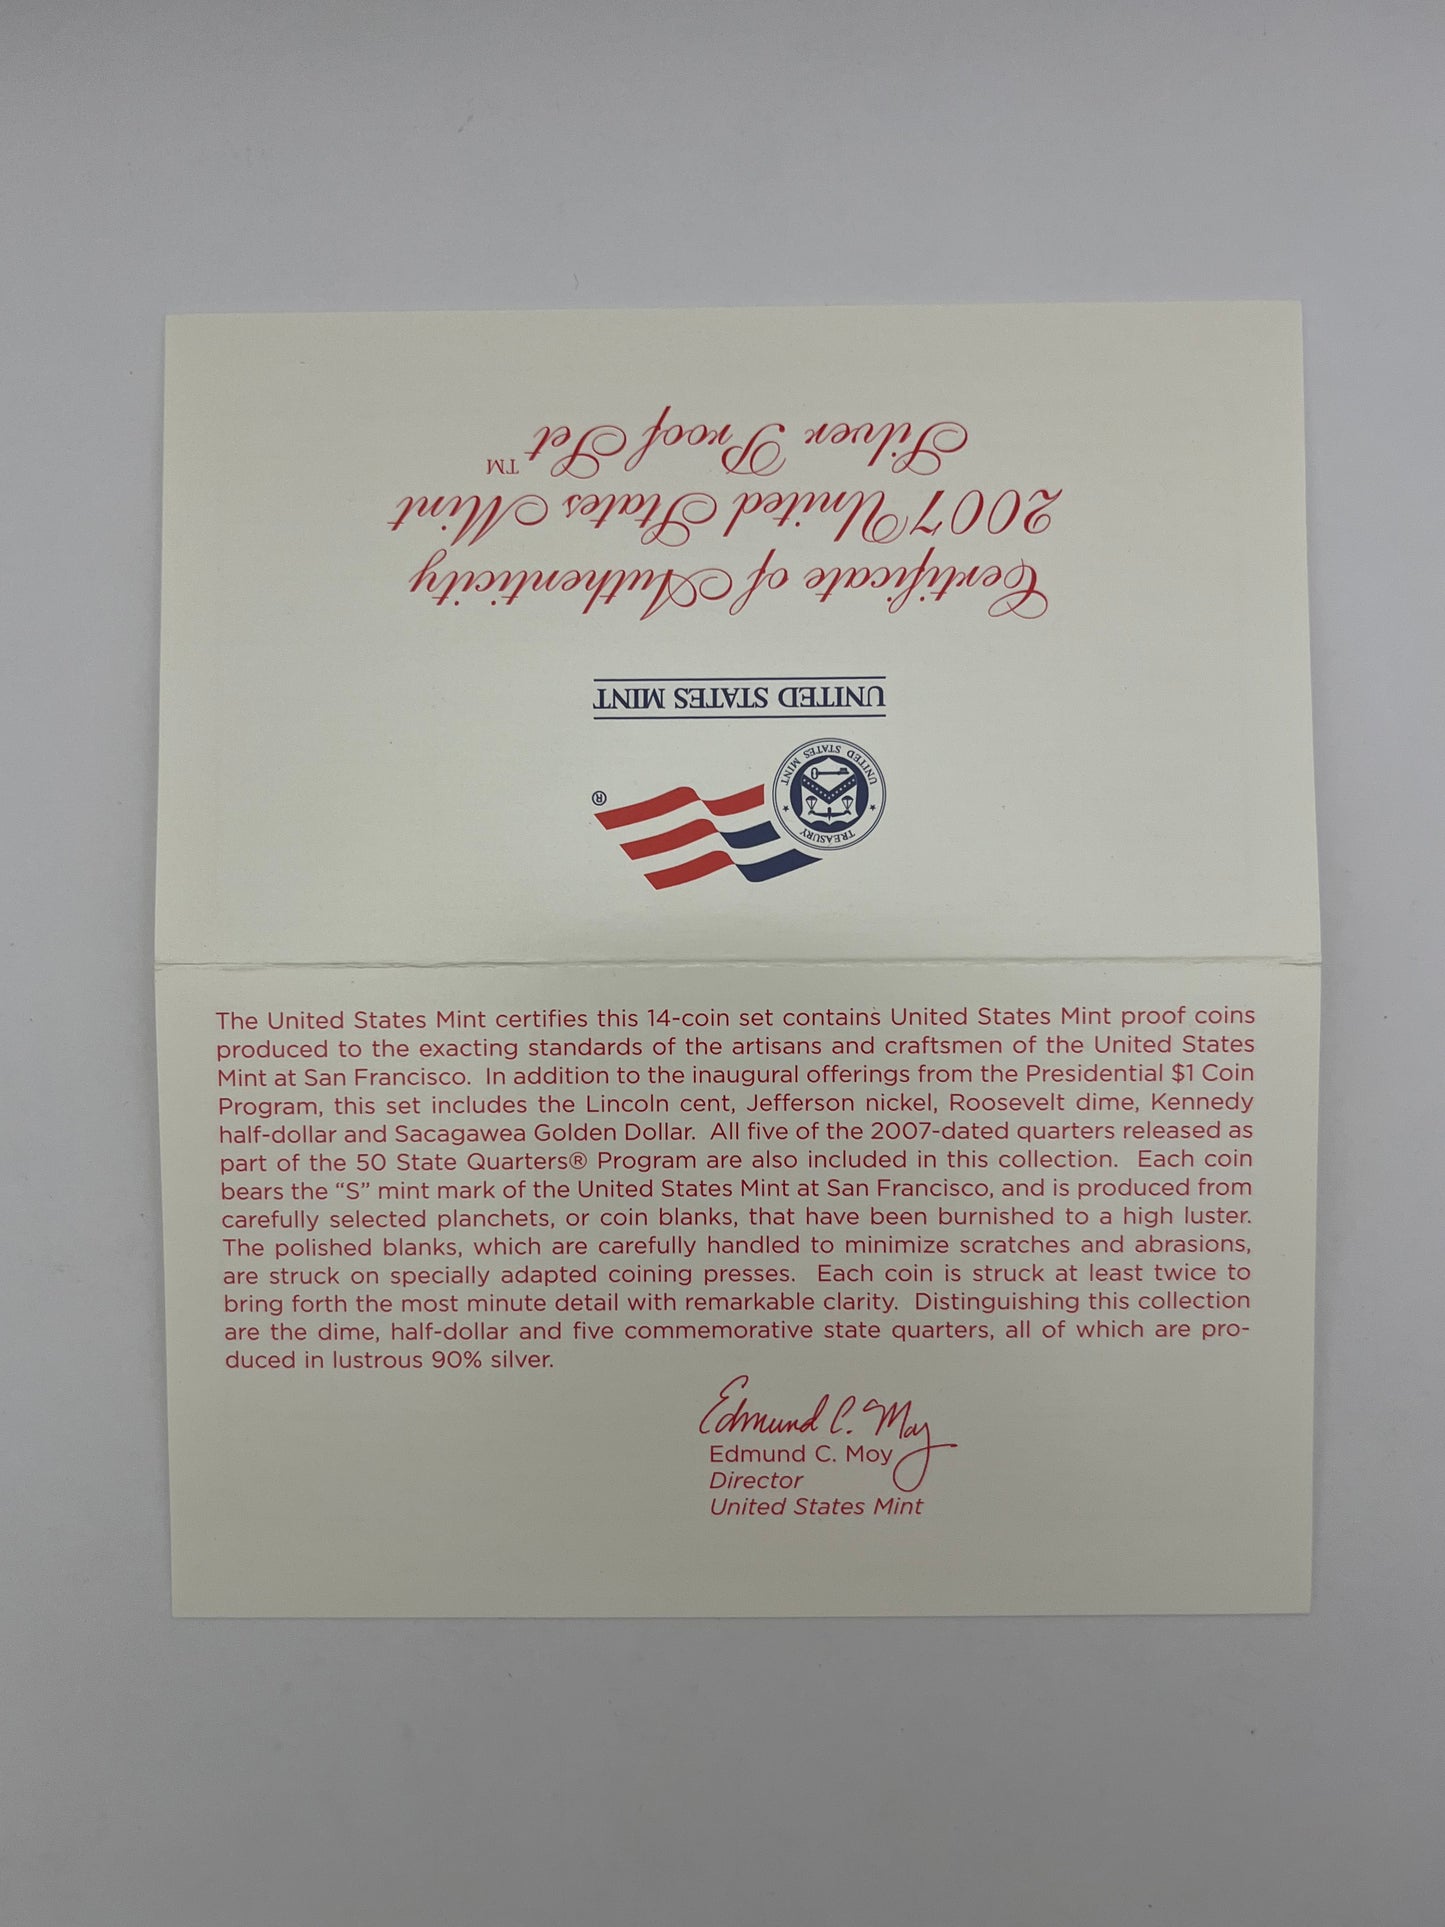 Certificate of Authenticity
2007 United States Mint
Silver Proof Set™
UNITED STATES MINT
UNITED STATES MINT
TREASURY
®
The United States Mint certifies this 14-coin set contains United States Mint proof coins
produced to the exacting standards of the artisans and craftsmen of the United States
Mint at San Francisco. In addition to the inaugural offerings from the Presidential $1 Coin
Program, this set includes the Lincoln cent, Jefferson nickel, Roosevelt dime, Kennedy
half-dollar and Sacagawea Golden Dollar. All five of the 2007-dated quarters released as
part of the 50 State Quarters® Program are also included in this collection. Each coin
bears the “S” mint mark of the United States Mint at San Francisco, and is produced from
carefully selected planchets, or coin blanks, that have been burnished to a high luster.
The polished blanks, which are carefully handled to minimize scratches and abrasions,
are struck on specially adapted coining presses. Each coin is struck at least twice to
bring forth the most minute detail with remarkable clarity. Distinguishing this collection
are the dime, half-dollar and five commemorative state quarters, all of which are pro-
duced in lustrous 90% silver.
Edmund C. Moy
Edmund C. Moy
Director
United States Mint